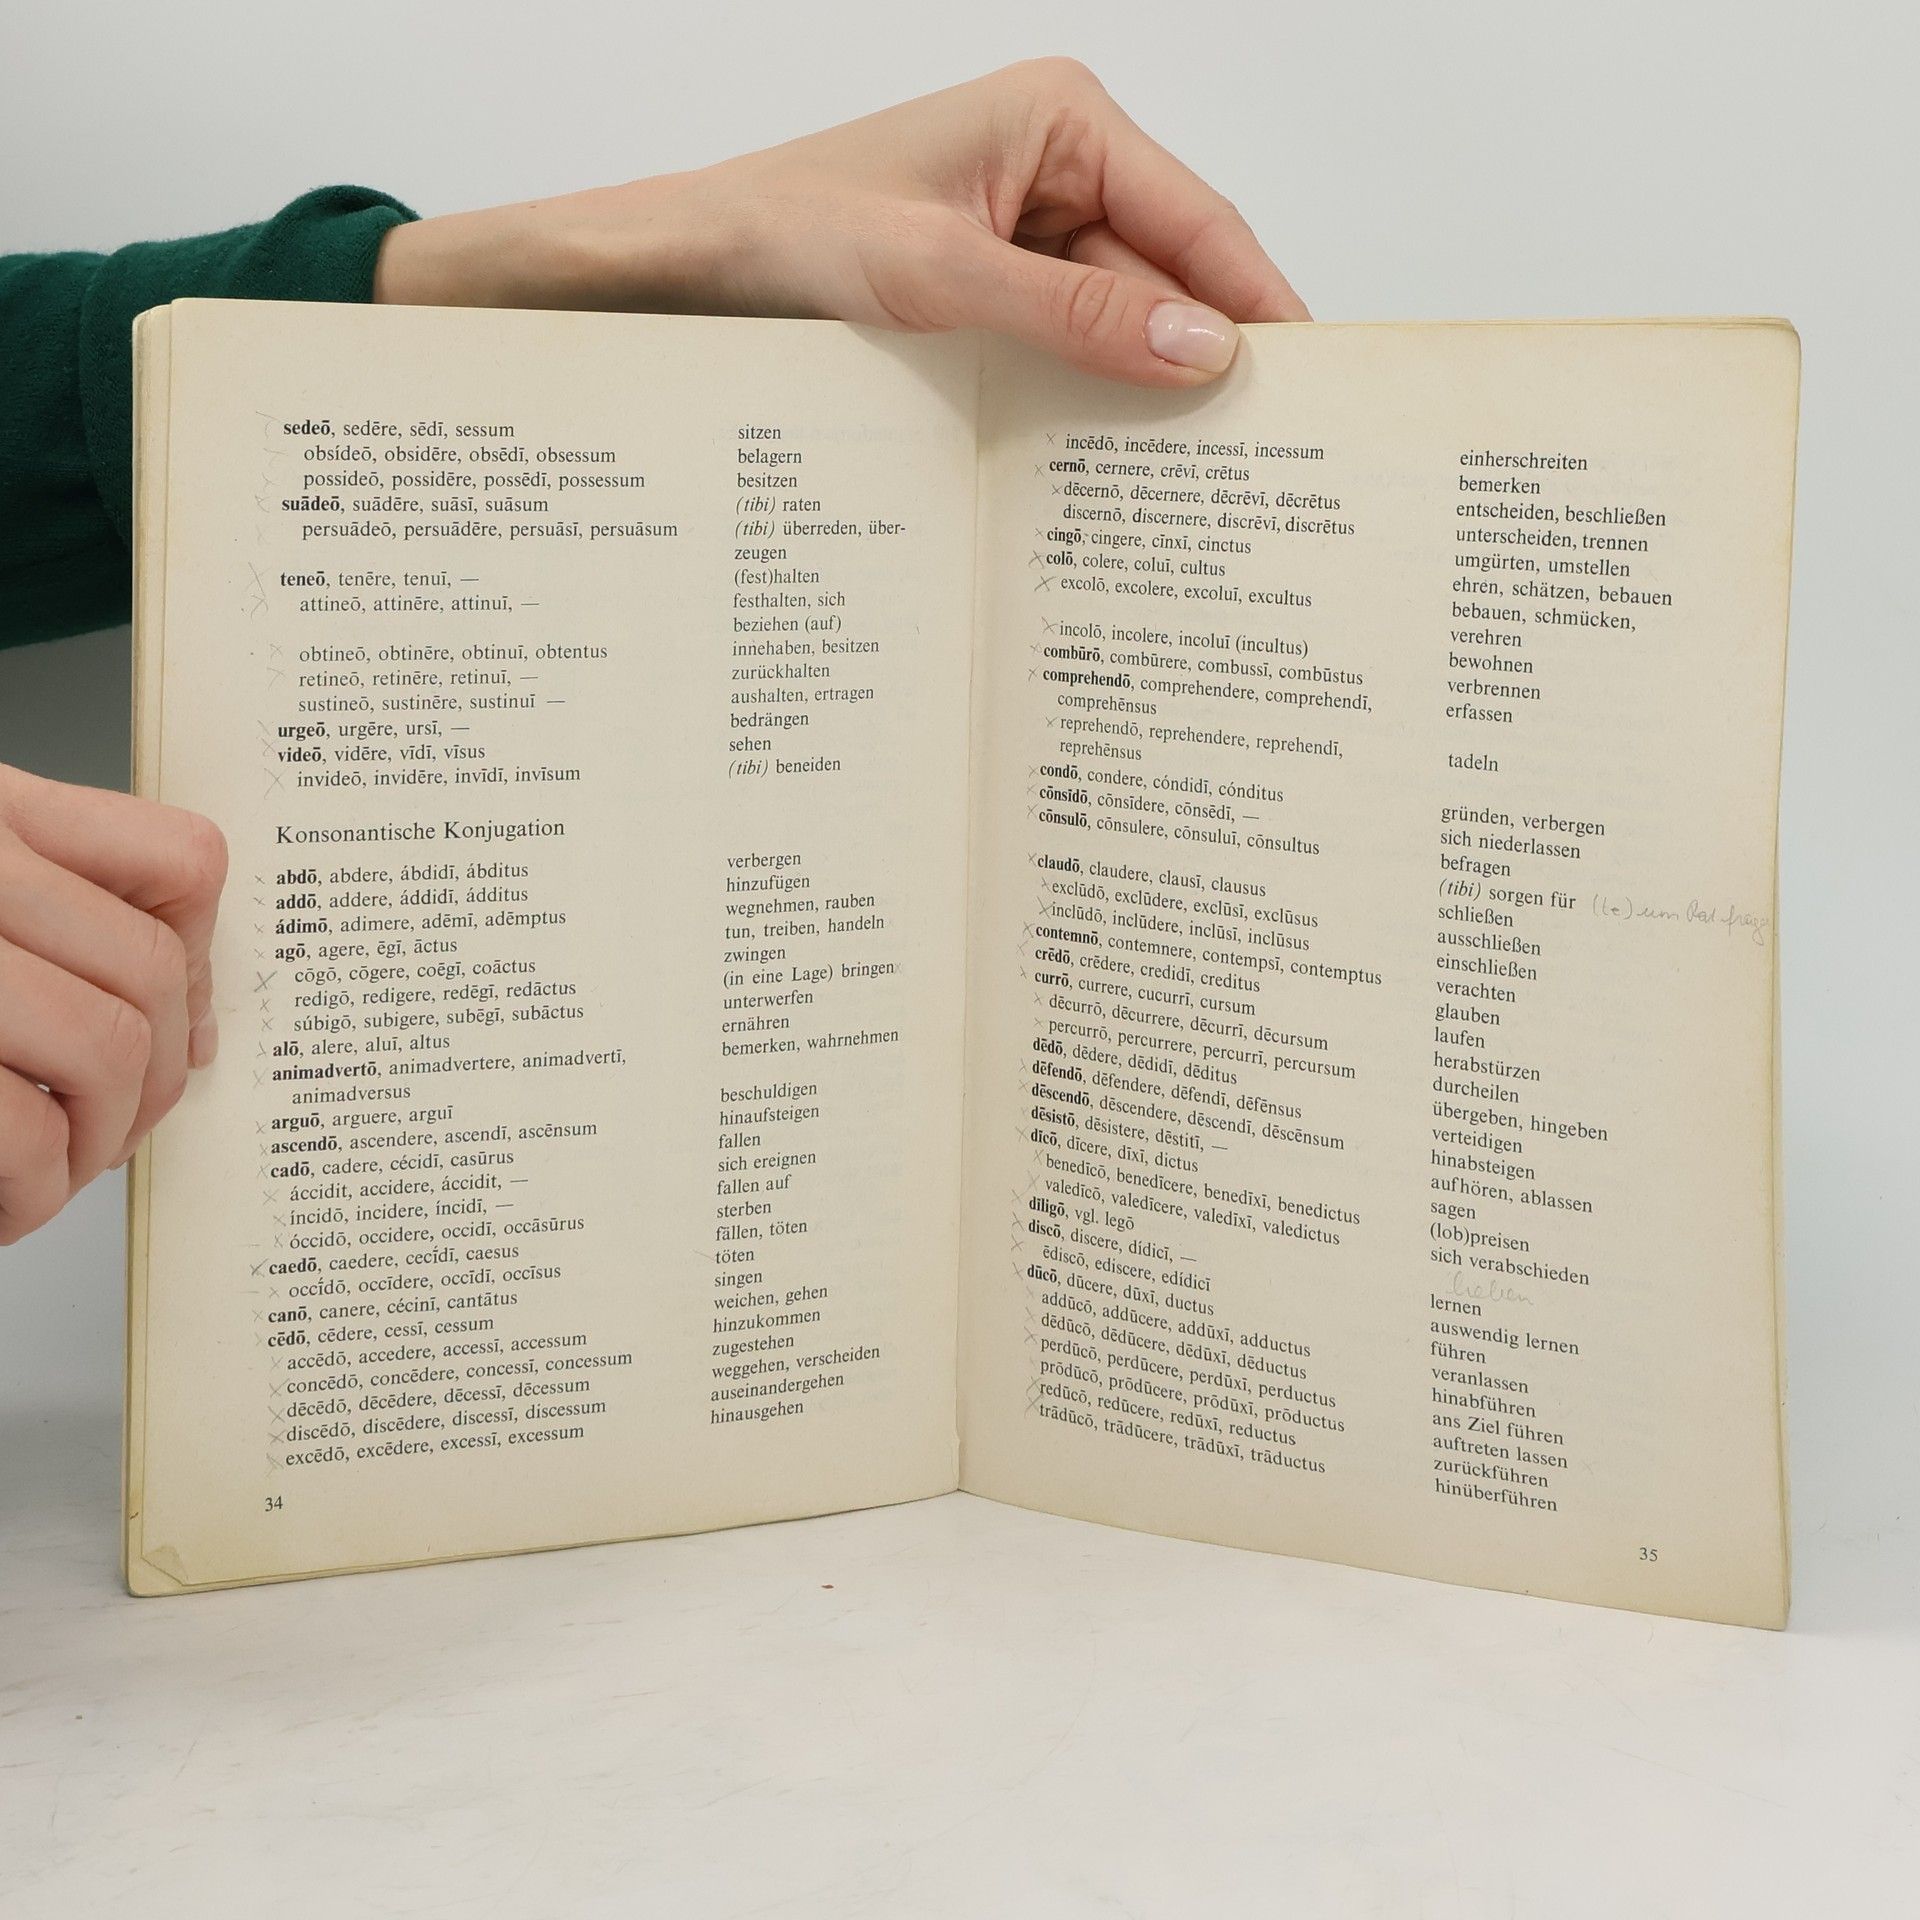 sedeō, sedēre, sēdī, sessum sitzen
obsídeō, obsidēre, obsēdī, obsessum belagern
possideō, possidēre, possēdī, possessum besitzen
suādeō, suādēre, suāsī, suāsum (tibi) raten
persuādeō, persuādēre, persuāsī, persuāsum (tibi) überreden, über-
zeugen
teneō, tenēre, tenuī, — (fest)halten
attineō, attinēre, attinuī, — festhalten, sich
beziehen (auf)
obtineō, obtinēre, obtinuī, obtentus innehaben, besitzen
retineō, retinēre, retinuī, — zurückhalten
sustineō, sustinēre, sustinuī — aushalten, ertragen
urgeō, urgēre, ursī, — bedrängen
videō, vidēre, vīdī, vīsus sehen
invideō, invidēre, invīdī, invīsum (tibi) beneiden
Konsonantische Konjugation
abdō, abdere, ábdidī, ábditus verbergen
addō, addere, áddidī, ádditus hinzufügen
ádimō, adimere, adēmī, adēmptus wegnehmen, rauben
agō, agere, ēgī, āctus tun, treiben, handeln
cōgō, cōgere, coēgī, coāctus zwingen
redigō, redigere, redēgī, redāctus (in eine Lage) bringen
súbigō, subigere, subēgī, subāctus unterwerfen
alō, alere, aluī, altus ernähren
animadvertō, animadvertere, animadvertī, bemerken, wahrnehmen
animadversus
arguō, arguere, arguī beschuldigen
ascendō, ascendere, ascendī, ascēnsum hinaufsteigen
cadō, cadere, cécidī, casūrus fallen
áccidit, accidere, áccidit, — sich ereignen
íncidō, incidere, íncidī, — fallen auf
óccidō, occidere, occidī, occāsūrus sterben
caedō, caedere, cecī́dī, caesus fällen, töten
occī́dō, occīdere, occīdī, occīsus töten
canō, canere, cécinī, cantātus singen
cēdō, cēdere, cessī, cessum weichen, gehen
accēdō, accedere, accessī, accessum hinzukommen
concēdō, concēdere, concessī, concessum zugestehen
dēcēdō, dēcēdere, dēcessī, dēcessum weggehen, verscheiden
discēdō, discēdere, discessī, discessum auseinandergehen
excēdō, excēdere, excessī, excessum hinausgehen
34
incēdō, incēdere, incessī, incessum einherschreiten
cernō, cernere, crēvī, crētus bemerken
dēcernō, dēcernere, dēcrēvī, dēcrētus entscheiden, beschließen
discernō, discernere, discrēvī, discrētus unterscheiden, trennen
cingō, cingere, cīnxī, cinctus umgürten, umstellen
colō, colere, coluī, cultus ehren, schätzen, bebauen
excolō, excolere, excoluī, excultus bebauen, schmücken,
verehren
incolō, incolere, incoluī (incultus) bewohnen
combūrō, combūrere, combussī, combūstus verbrennen
comprehendō, comprehendere, comprehendī, erfassen
comprehēnsus
reprehendō, reprehendere, reprehendī, tadeln
reprehēnsus
condō, condere, cóndidī, cónditus gründen, verbergen
cōnsīdō, cōnsīdere, cōnsēdī, — sich niederlassen
cōnsulō, cōnsulere, cōnsuluī, cōnsultus befragen
(tibi) sorgen für (te) um Rat
claudō, claudere, clausī, clausus schließen
exclūdō, exclūdere, exclūsī, exclūsus ausschließen
inclūdō, inclūdere, inclūsī, inclūsus einschließen
contemnō, contemnere, contempsī, contemptus verachten
crēdō, crēdere, credidī, creditus glauben
currō, currere, cucurrī, cursum laufen
dēcurrō, dēcurrere, dēcurrī, dēcursum herabstürzen
percurrō, percurrere, percurrī, percursum durcheilen
dēdō, dēdere, dēdidī, dēditus übergeben, hingeben
dēfendō, dēfendere, dēfendī, dēfēnsus verteidigen
dēscendō, dēscendere, dēscendī, dēscēnsum hinabsteigen
dēsistō, dēsistere, dēstitī, — aufhören, ablassen
dīcō, dīcere, dīxī, dictus sagen
benedīcō, benedīcere, benedīxī, benedictus (lob)preisen
valedīcō, valedīcere, valedīxī, valedictus sich verabschieden
dīligō, vgl. legō lieben
discō, discere, dídicī, — lernen
ēdiscō, ediscere, edídicī auswendig lernen
dūcō, dūcere, dūxī, ductus führen
addūcō, addūcere, addūxī, adductus veranlassen
dēdūcō, dēdūcere, dēdūxī, dēductus hinabführen
perdūcō, perdūcere, perdūxī, perductus ans Ziel führen
prōdūcō, prōdūcere, prōdūxī, prōductus auftreten lassen
redūcō, redūcere, redūxī, reductus zurückführen
trādūcō, trādūcere, trādūxī, trāductus hinüberführen
35